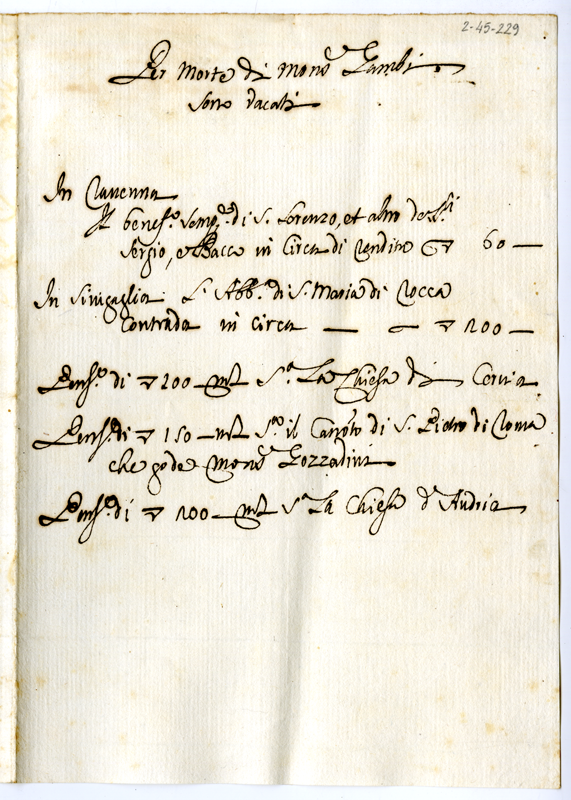 2-45-229
Per Morte di Mons.r Zambi
sono vacati
In Ravenna
Il benef.o semp.e di S. Lorenzo, et altro de SS.ti
Sergio, e Bacco in circa di rendita ∇ 60 —
In Sinigaglia L'Abb.a di S. Maria di Rocca
Contrada in circa — ∇ 200 —
Pens.e di ∇ 200 — m.ta S.a La Chiesa di Cervia
Pens.e di ∇ 150 — m.ta S.a il Can.to di S. Pietro di Roma
che gode Mons.r Gozzadini
Pens.e di ∇ 200 — m.ta S.a La Chiesa d'Andria